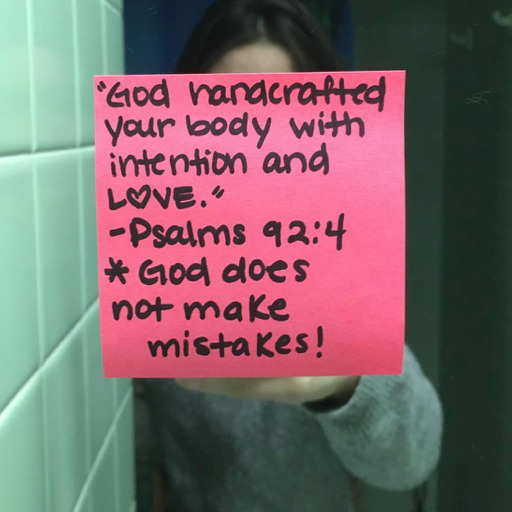 "God handcrafted
your body with
intention and
L♡VE."
-Psalms 92:4
* God does
not make
mistakes!